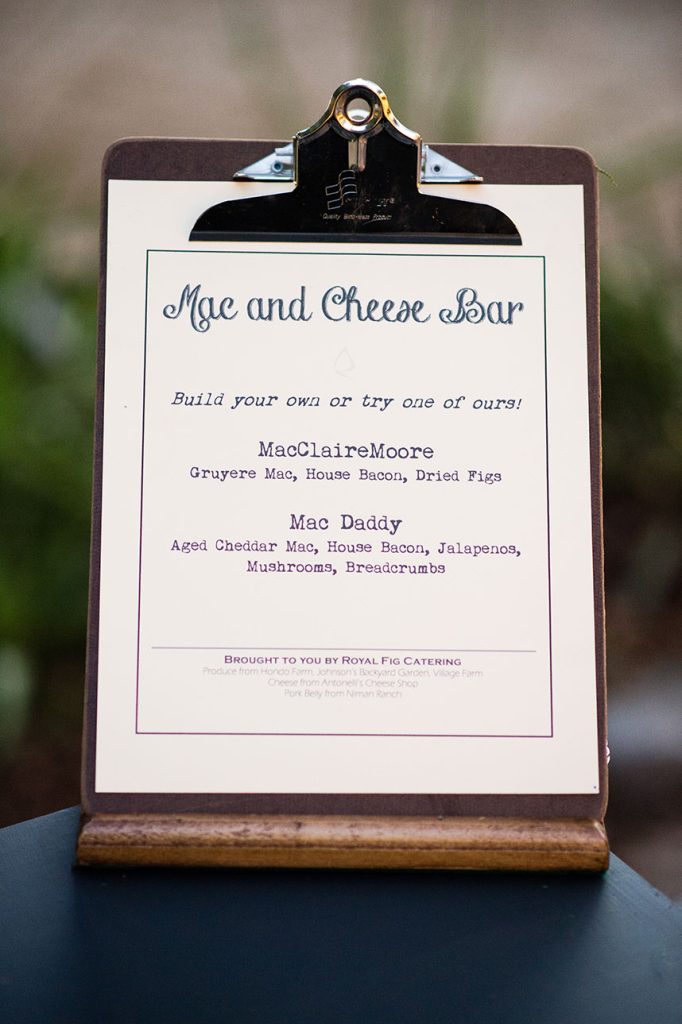 Quality Bend-ease Product
Mac and Cheese Bar
Build your own or try one of ours!
MacClaireMoore
Gruyere Mac, House Bacon, Dried Figs
Mac Daddy
Aged Cheddar Mac, House Bacon, Jalapenos,
Mushrooms, Breadcrumbs
Brought to you by Royal Fig Catering
Produce from Hondo Farm, Johnson's Backyard Garden, Village Farm
Cheese from Antonelli's Cheese Shop
Pork Belly from Niman Ranch